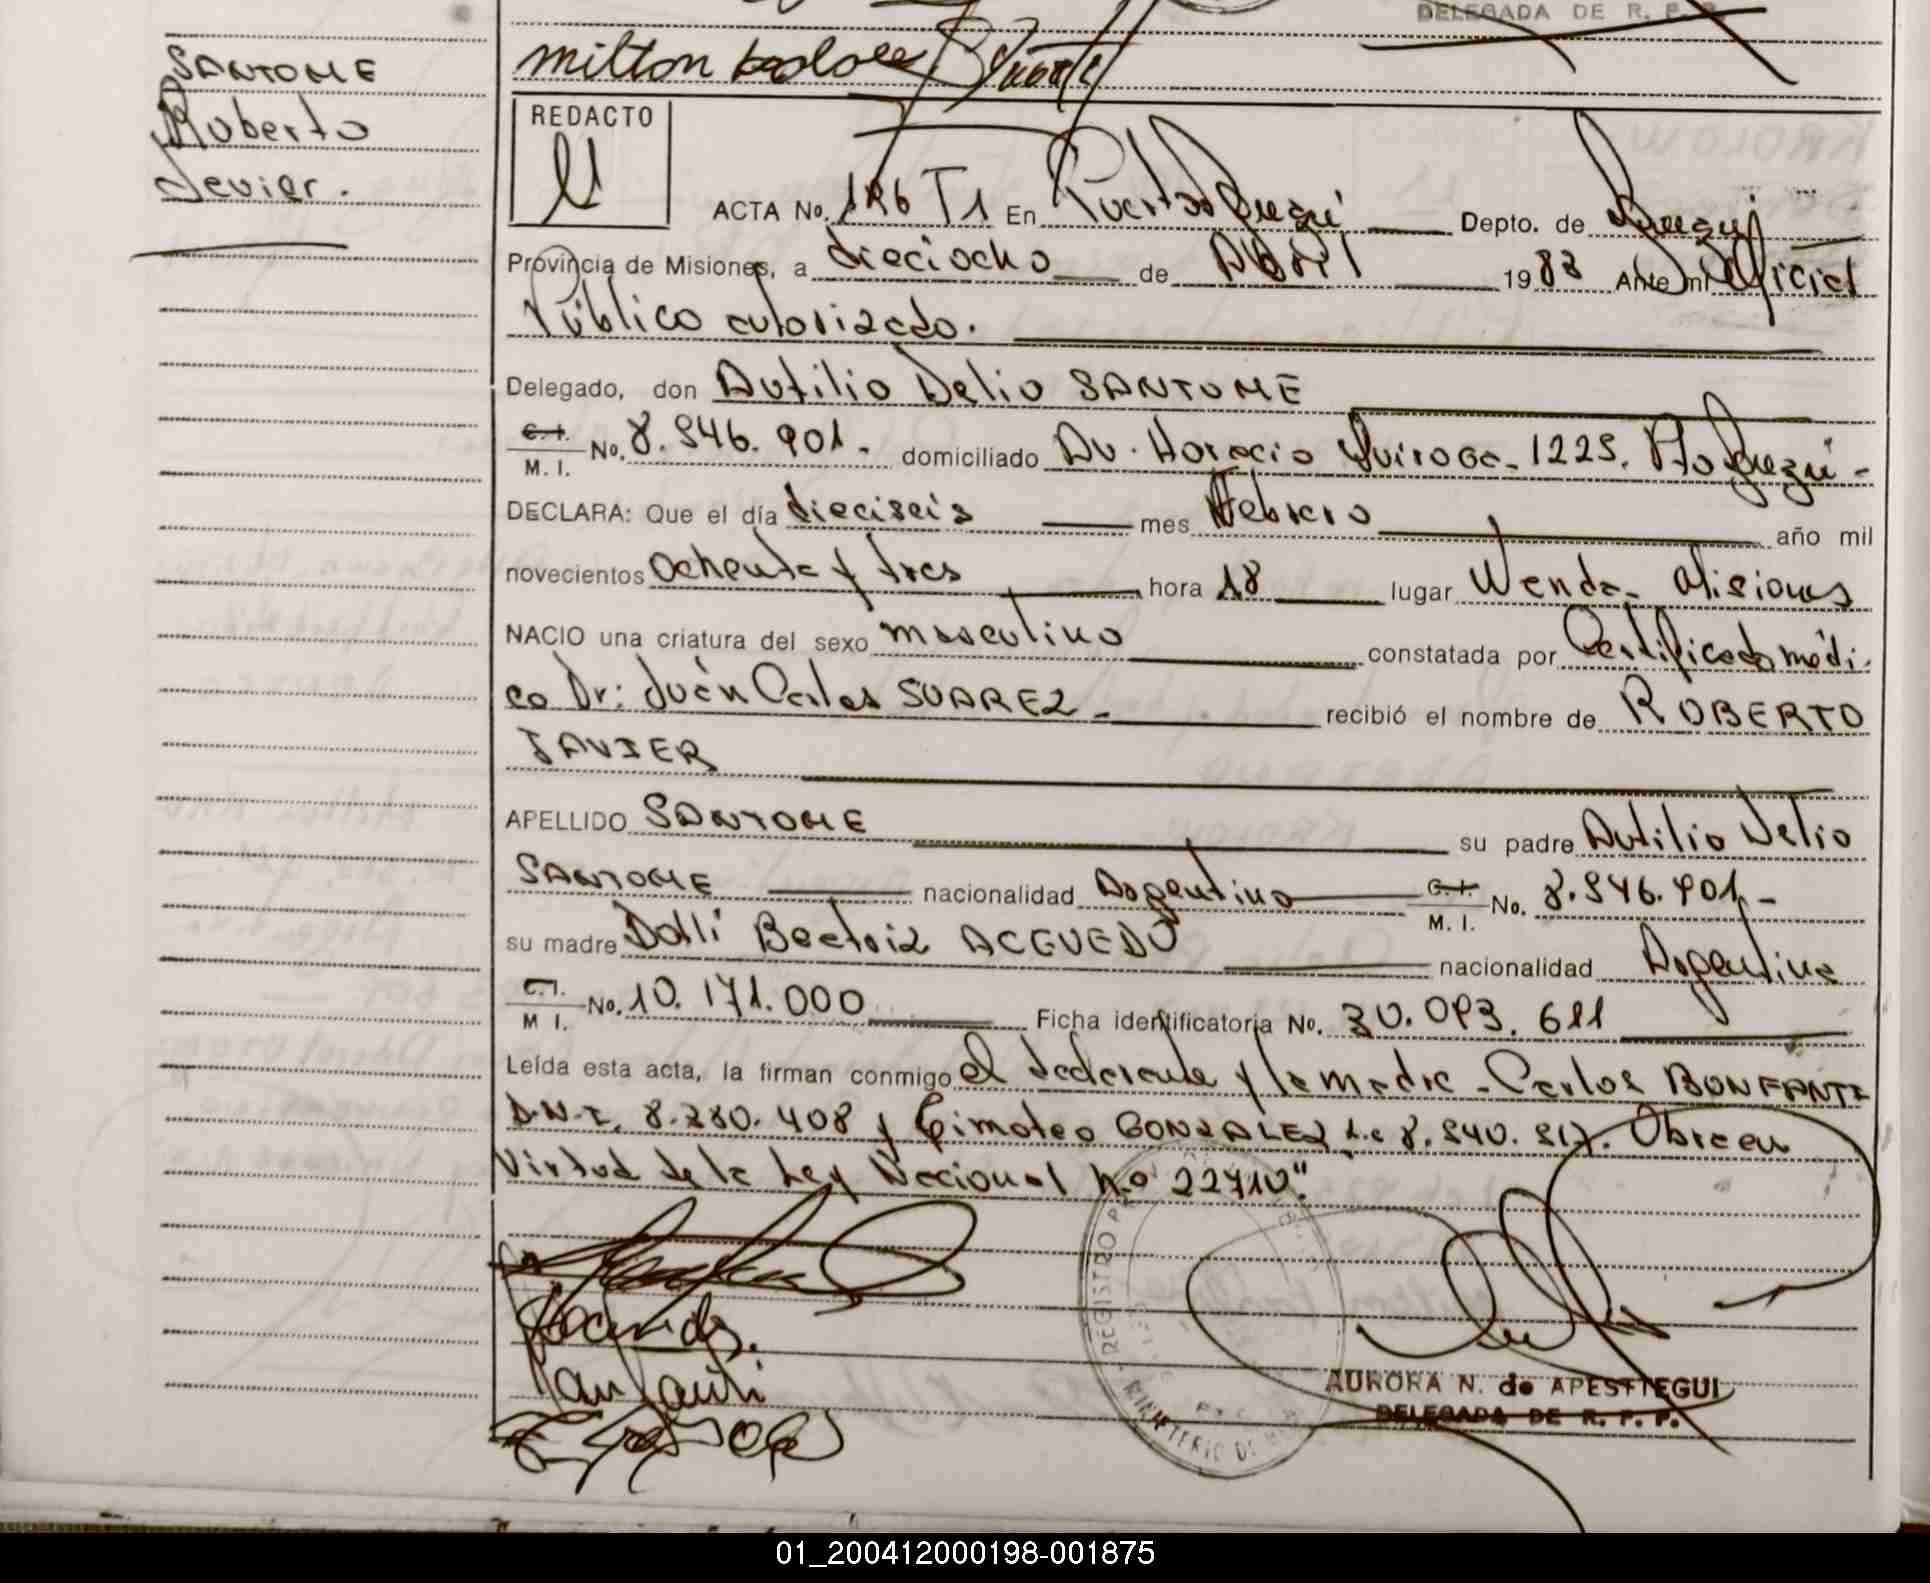 DELEGADA DE R. P. P.
SANTOME
Roberto
Javier.
milton
REDACTO
ACTA No. 186 T1 En Puerto Iguazú Depto. de Iguazú
Provincia de Misiones, a dieciocho de Abril 1983 Ante mí Oficial
Público autorizado.
Delegado, don Autilio Delio SANTOME
C.I. M. I. No. 8.546.901.- domiciliado Av. Horacio Quiroga- 1225. Pto Iguazú-
DECLARA: Que el día dieciseis mes Febrero año mil
novecientos ochenta y tres hora 18 lugar Wanda- Misiones
NACIO una criatura del sexo masculino constatada por Certificado médi-
co Dr: Juán Carlos SUAREZ- recibió el nombre de ROBERTO
JAVIER
APELLIDO SANTOME su padre Autilio Delio
SANTOME nacionalidad Argentina C.I. M. I. No. 8.546.901.-
su madre Dolli Beatriz ACEVEDO nacionalidad Argentina
C.I. M I. No. 10.171.000 Ficha identificatoria No. 30.093.611
Leída esta acta, la firman conmigo el declarante y la madre - Carlos BONFANTI
D.N.I. 8.280.408 y Timoteo GONZALEZ L.e 8.540.517. Obre en
Virtud de la Ley Nacional N.º 22710".
REGISTRO P
MINISTERIO DE
AURORA N. de APESTEGUI
DELEGADA DE R. P. P.
01_200412000198-001875